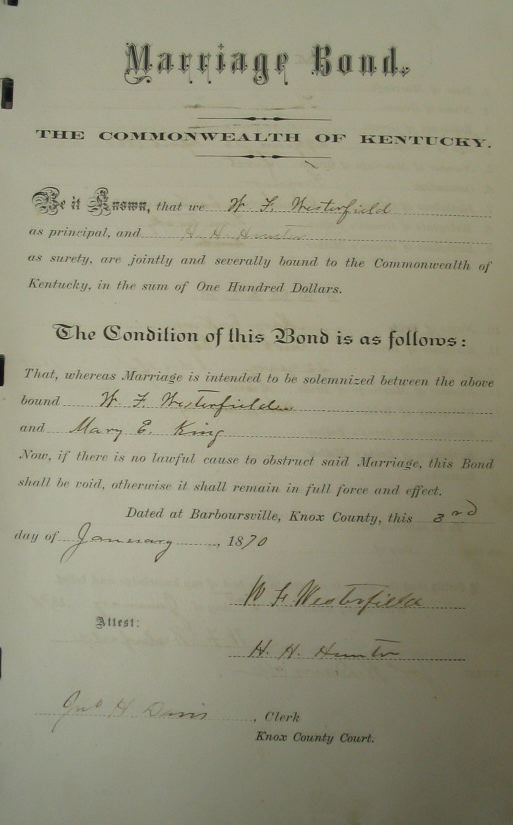 Marriage Bond.
THE COMMONWEALTH OF KENTUCKY.
Be it Known, that we W. F. Westerfield
as principal, and H. H. Hunter
as surety, are jointly and severally bound to the Commonwealth of
Kentucky, in the sum of One Hundred Dollars.
The Condition of this Bond is as follows:
That, whereas Marriage is intended to be solemnized between the above
bound W. F. Westerfield
and Mary E. King
Now, if there is no lawful cause to obstruct said Marriage, this Bond
shall be void, otherwise it shall remain in full force and effect.
Dated at Barboursville, Knox County, this 3rd
day of January, 1870
W F Westerfield
Attest:
H. H. Hunter
Jno H Davis, Clerk
Knox County Court.